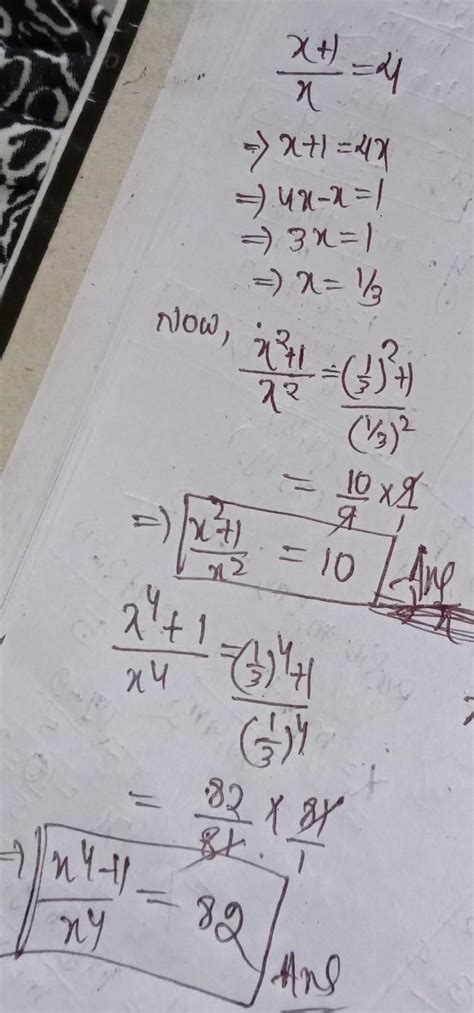 x+1/x = 4
⇒ x+1 = 4x
⇒ 4x-x = 1
⇒ 3x = 1
⇒ x = 1/3
Now, x²+1/x² = (1/3)²+1/(1/3)²
= 10/9 × 9/1
⇒ x²+1/x² = 10 Ans
x⁴+1/x⁴ = (1/3)⁴+1/(1/3)⁴
= 82/81 × 81/1
⇒ x⁴+1/x⁴ = 82 Ans